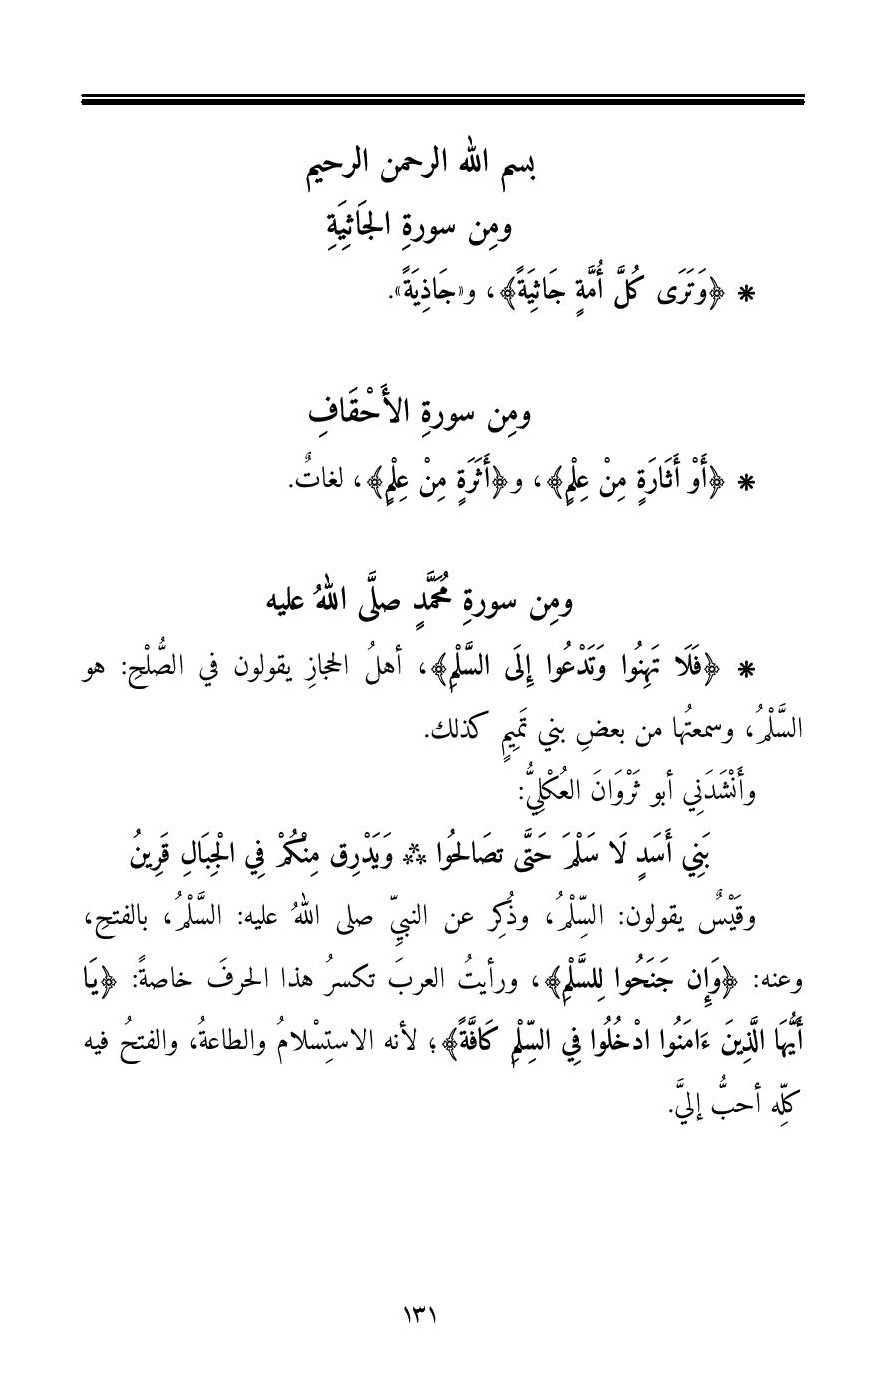 بسم الله الرحمن الرحيم
ومِن سورةِ الجَاثِيَةِ
* ﴿وَتَرَى كُلَّ أُمَّةٍ جَاثِيَةً﴾، و«جَاذِيَةً».
ومِن سورةِ الأَحْقَافِ
* ﴿أَوْ أَثَارَةٍ مِنْ عِلْمٍ﴾، و﴿أَثَرَةٍ مِنْ عِلْمٍ﴾، لغاتٌ.
ومِن سورةِ مُحَمَّدٍ صلَّى اللهُ عليه
* ﴿فَلَا تَهِنُوا وَتَدْعُوا إِلَى السَّلْمِ﴾، أهلُ الحجازِ يقولون في الصُّلْحِ: هو
السَّلْمُ، وسمعتُها من بعضِ بني تَمِيمٍ كذلك.
وأَنْشَدَنِي أبو ثَرْوَانَ العُكْلِيُّ:
بَنِي أَسَدٍ لَا سَلْمَ حَتَّى تصَالحُوا ** وَيَدْرِق مِنْكُمْ فِي الْجِبَالِ قَرِينُ
وقَيْسٌ يقولون: السِّلْمُ، وذُكِر عن النبيِّ صلى اللهُ عليه: السَّلْمُ، بالفتحِ،
وعنه: ﴿وَإِن جَنَحُوا لِلسَّلْمِ﴾، ورأيتُ العربَ تكسرُ هذا الحرفَ خاصةً: ﴿يَا
أَيُّهَا الَّذِينَ ءَامَنُوا ادْخُلُوا فِي السِّلْمِ كَافَّةً﴾؛ لأنه الاستِسْلامُ والطاعةُ، والفتحُ فيه
كلِّه أحبُّ إليَّ.
١٣١